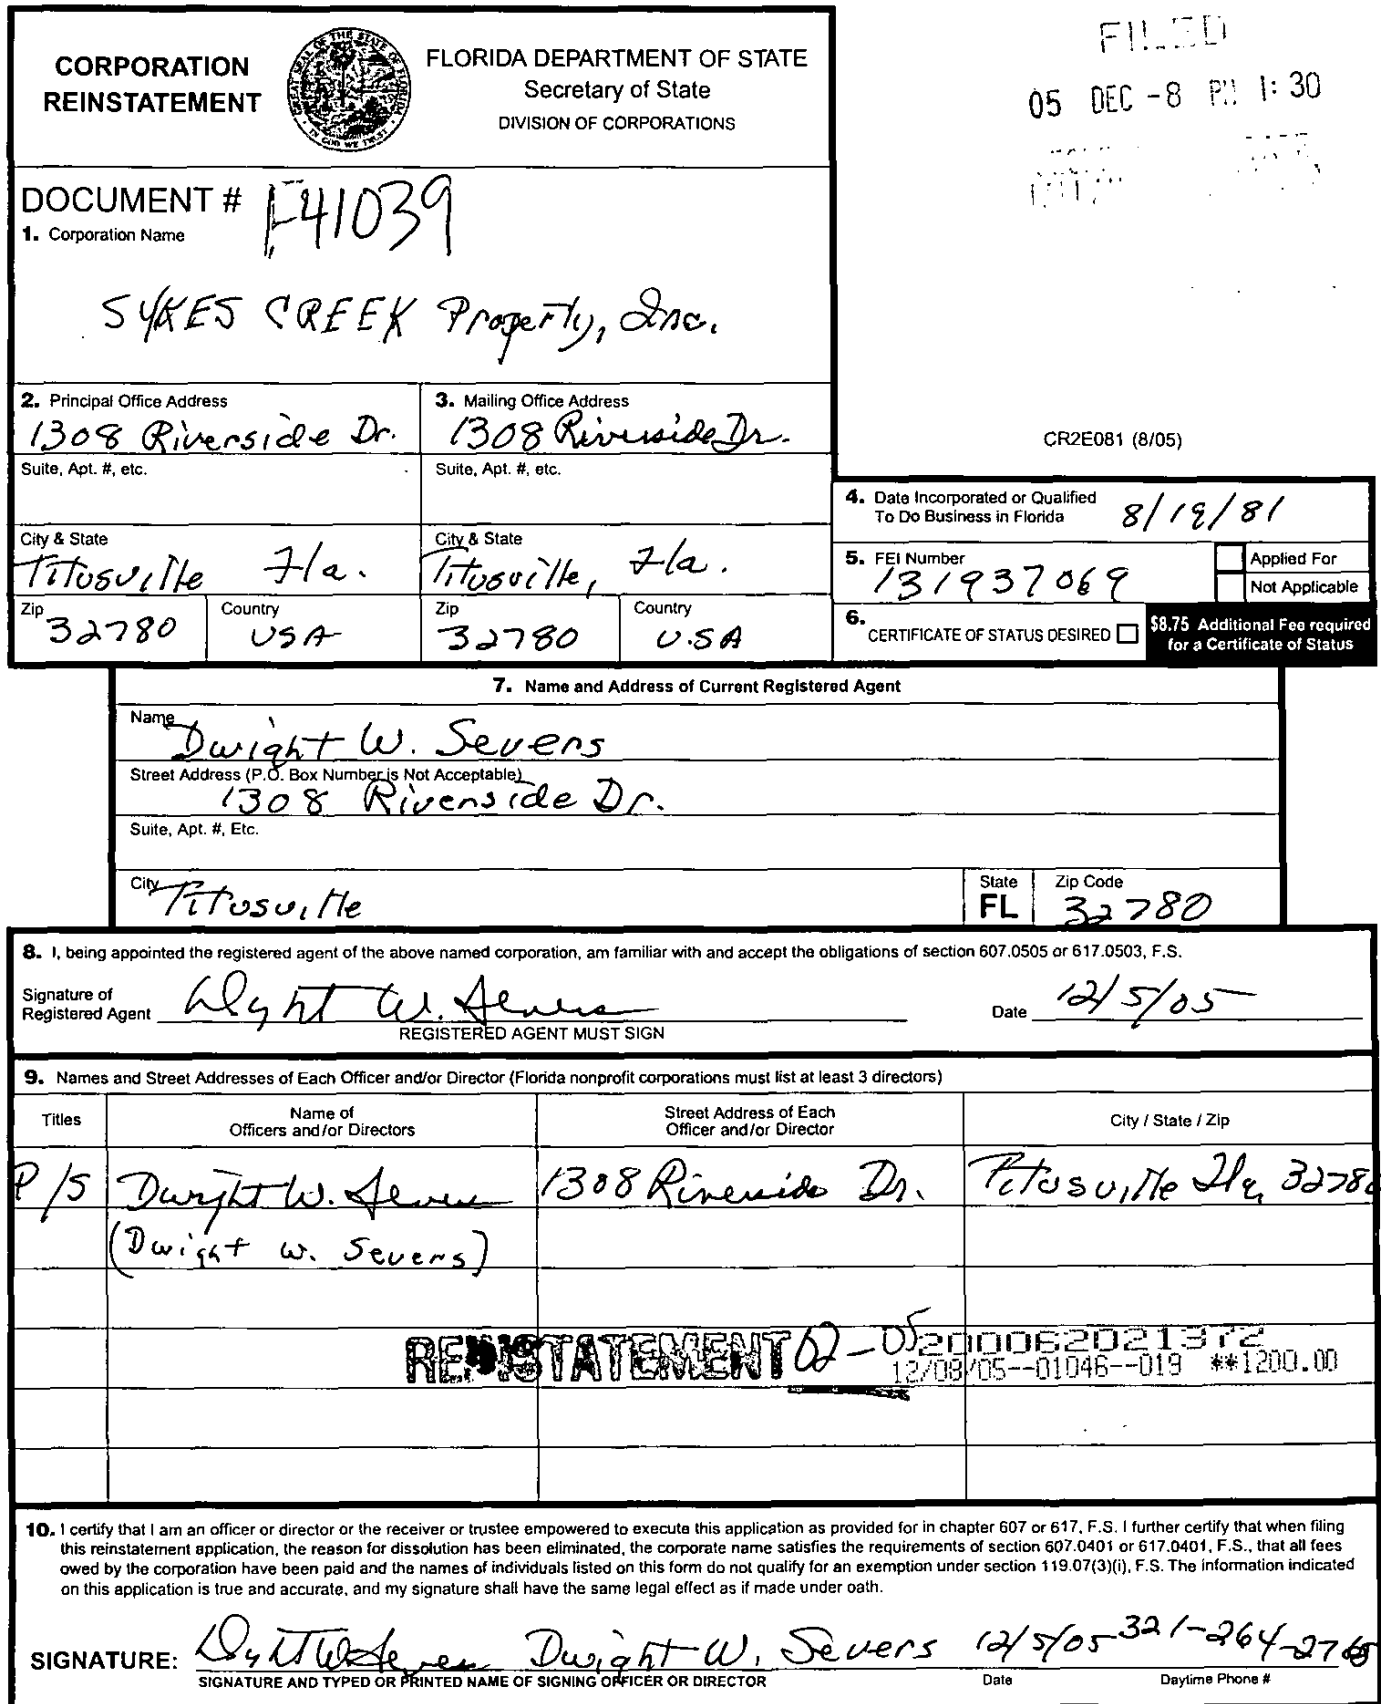 CORPORATION
REINSTATEMENT
GREAT SEAL OF THE STATE OF FLORIDA
IN GOD WE TRUST
FLORIDA DEPARTMENT OF STATE
Secretary of State
DIVISION OF CORPORATIONS
FILED
05 DEC -8 PM 1:30
DOCUMENT # F41039
1. Corporation Name
SYKES CREEK Property, Inc.
2. Principal Office Address
1308 Riverside Dr.
3. Mailing Office Address
1308 Riverside Dr.
CR2E081 (8/05)
Suite, Apt. #, etc.
Suite, Apt. #, etc.
4. Date Incorporated or Qualified
To Do Business in Florida 8/19/81
City & State
Titusville Fla.
City & State
Titusville, Fla.
5. FEI Number
131937069
Applied For
Not Applicable
Zip
32780
Country
USA
Zip
32780
Country
U.SA
6. CERTIFICATE OF STATUS DESIRED
$8.75 Additional Fee required
for a Certificate of Status
7. Name and Address of Current Registered Agent
Name
Dwight W. Severs
Street Address (P.O. Box Number is Not Acceptable)
1308 Riverside Dr.
Suite, Apt. #, Etc.
City
Titusville
State
FL
Zip Code
32780
8. I, being appointed the registered agent of the above named corporation, am familiar with and accept the obligations of section 607.0505 or 617.0503, F.S.
Signature of
Registered Agent Dwight W. Severs
Date 12/5/05
REGISTERED AGENT MUST SIGN
9. Names and Street Addresses of Each Officer and/or Director (Florida nonprofit corporations must list at least 3 directors)
Titles
Name of
Officers and/or Directors
Street Address of Each
Officer and/or Director
City / State / Zip
P/S Dwight W. Severs 1308 Riverside Dr. Titusville Fla. 32780
(Dwight W. Severs)
REINSTATEMENT 02-05
200062021372
12/08/05--01046--019 **1200.00
10. I certify that I am an officer or director or the receiver or trustee empowered to execute this application as provided for in chapter 607 or 617, F.S. I further certify that when filing
this reinstatement application, the reason for dissolution has been eliminated, the corporate name satisfies the requirements of section 607.0401 or 617.0401, F.S., that all fees
owed by the corporation have been paid and the names of individuals listed on this form do not qualify for an exemption under section 119.07(3)(i), F.S. The information indicated
on this application is true and accurate, and my signature shall have the same legal effect as if made under oath.
SIGNATURE: Dwight W Severs Dwight W. Severs 12/5/05 321-264-2768
SIGNATURE AND TYPED OR PRINTED NAME OF SIGNING OFFICER OR DIRECTOR
Date
Daytime Phone #